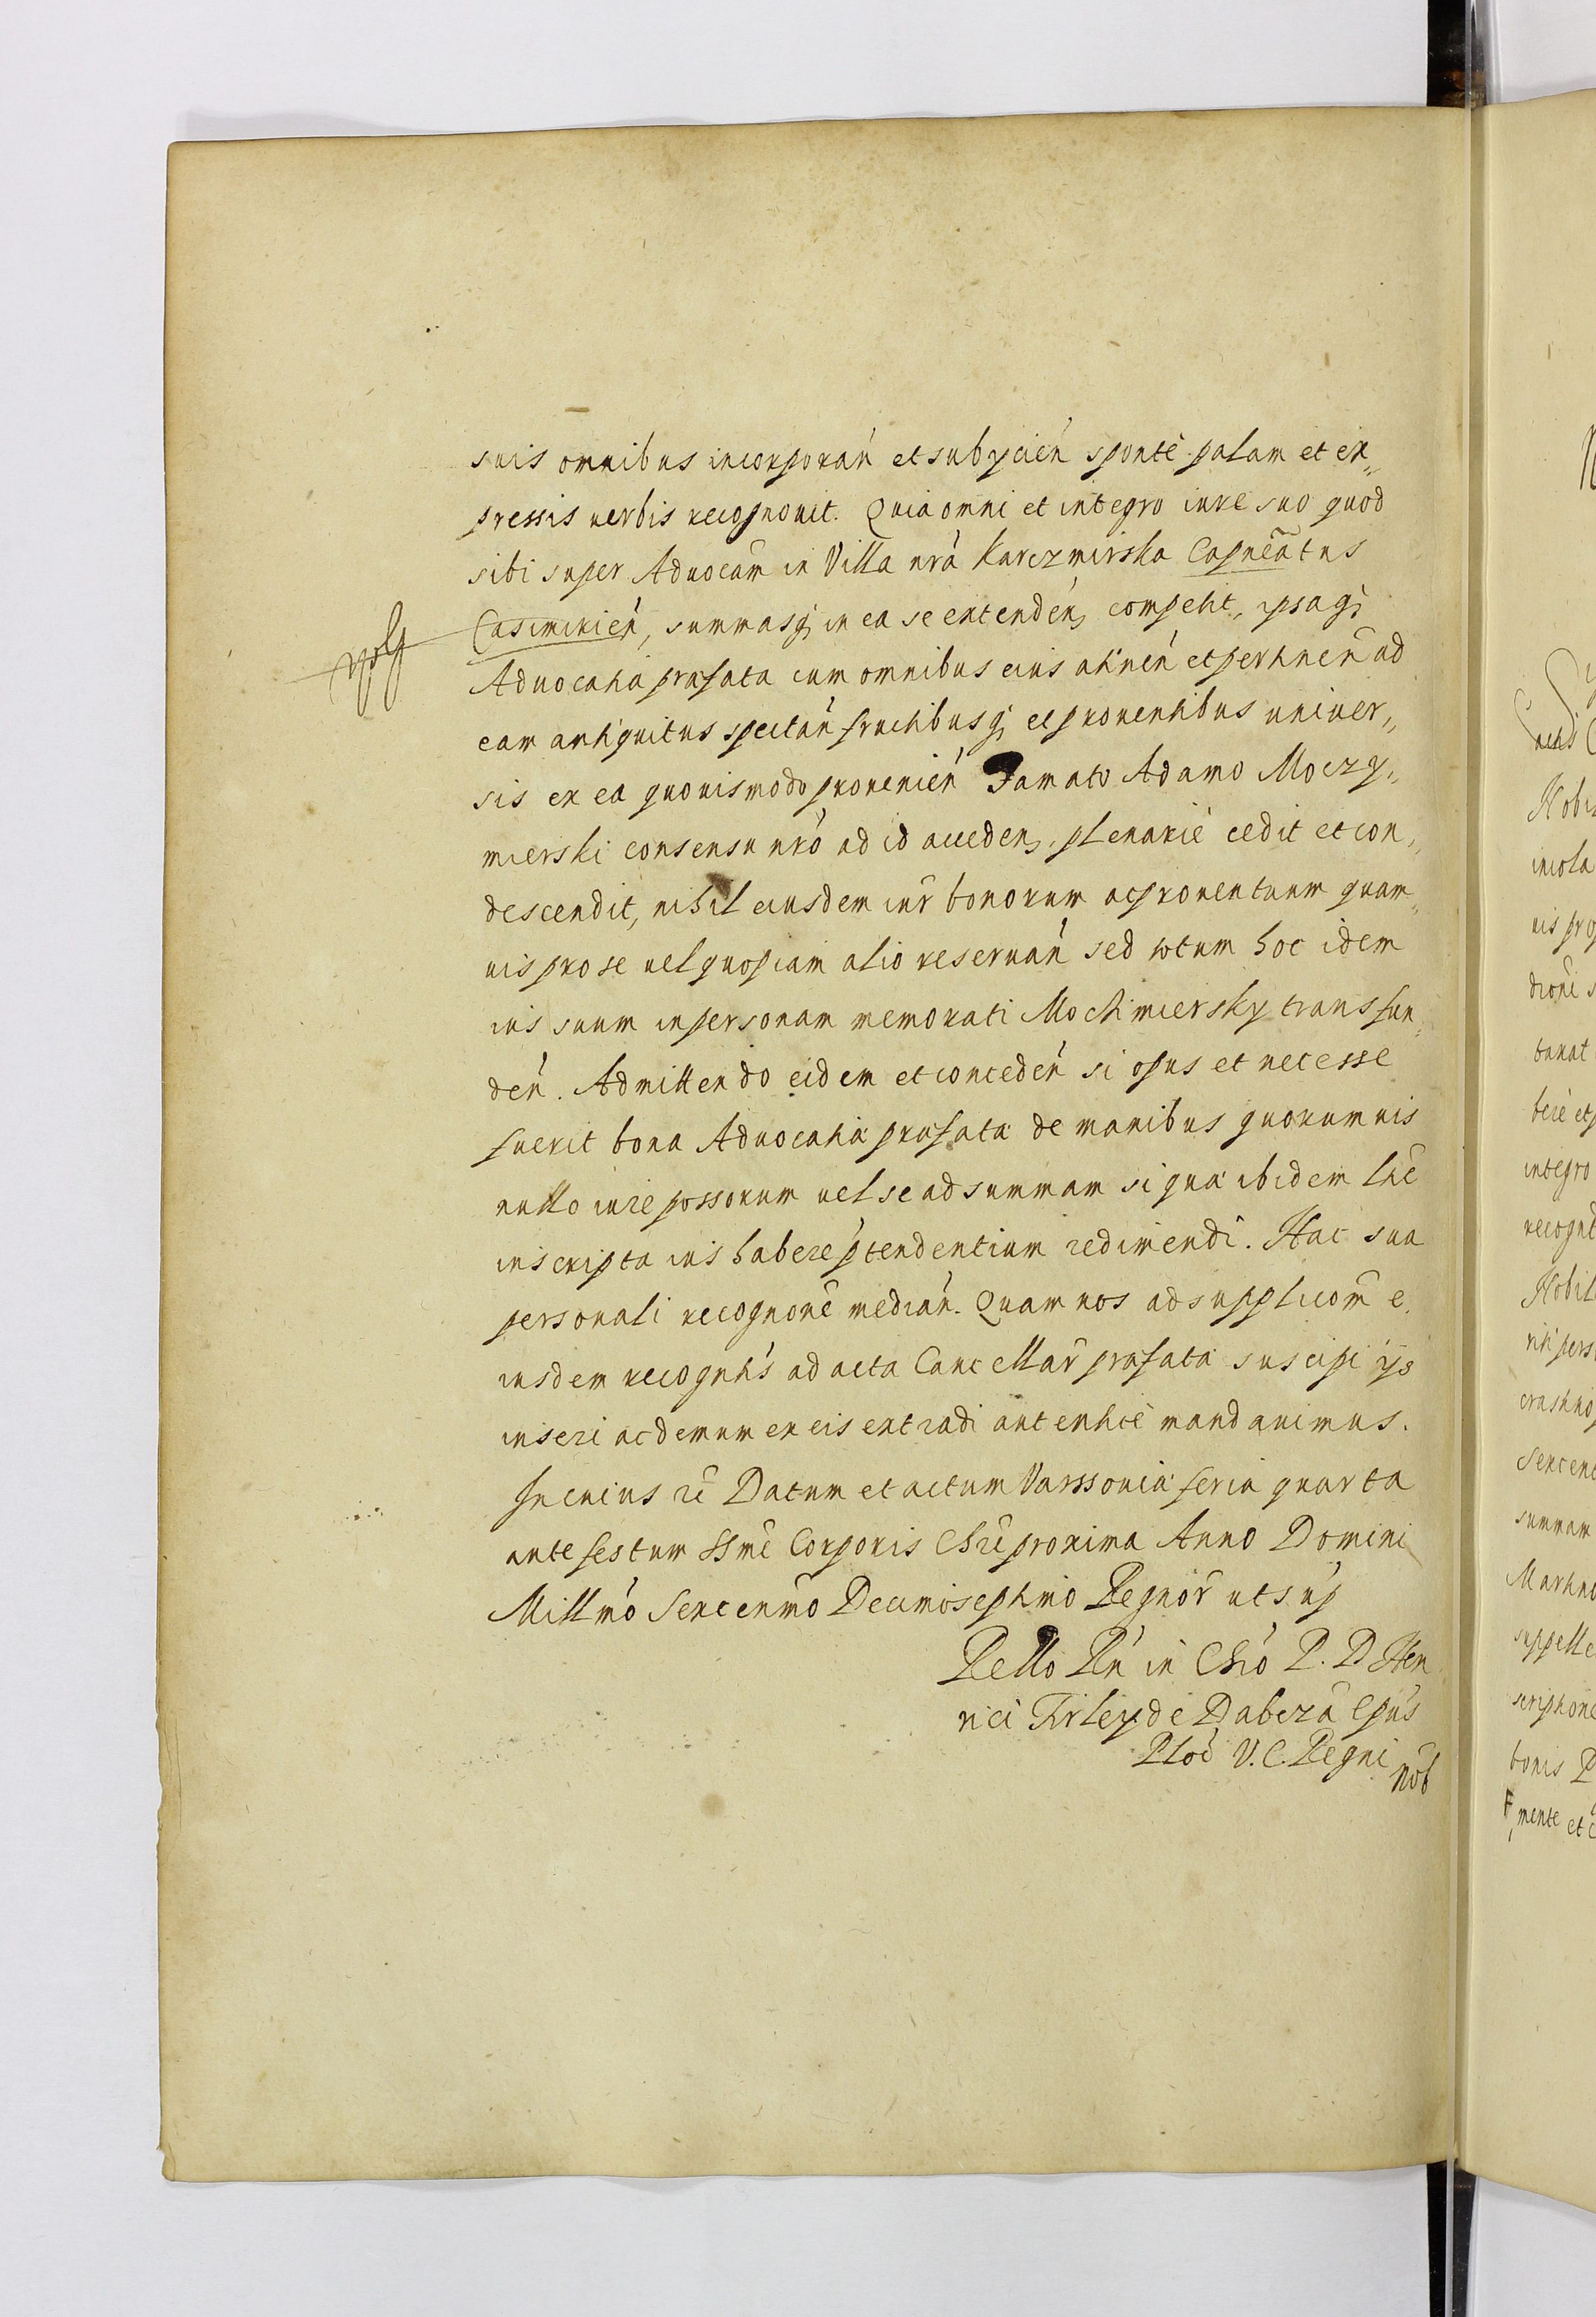 suis omnibus incorporan̄ et subycien̄ sponte palam et ex„
pressis uerbis recognouit. Quia omni et integro iure suo quod
sibi super Aduocām in Villa nrã Karczmirska Capnẽatus
Casimirien̄, summasq; in ea se extenden̄, competit, ipsaq;
Aduocatia præfata cum omnibus eius attinen̄ et pertinen̄ ad
eam antiquitus spectan̄ fructibusq; et prouentibus uniuer„
sis ex ea quouismodo prouenien̄ Famato Adamo Moczy„
mierski consensu nrõ ad id acceden̄, plenarie cedit et con„
descendit, nihil eiusdem iur̄ bonorum ac prouentuum quam„
uis pro se uel quopiam alio reseruan̄ sed totum hoc idem
ius suum in personam memorati Mochmiersky transfun„
den̄. Admittendo eidem et conceden̄ si opus et necesse
fuerit bona Aduocatiæ præfatæ de manibus quorumuis
nullo iure possorum uel se ad summam si qua ibidem lrẽ
inscripta ius habere p̄tendentium redimendi. Hac sua
personali recognonẽ median̄. Quam nos ad supplicom̃ e„
iusdem recogntis̃ ad acta Cancellar̄ præfata suscipi ijs
inseri ac demum ex eis extradi autenticẽ mandauimus.
In cuius rẽ Datum et actum Varssouiæ feria quarta
ante festum SSmẽ Corporis Chrẽ proxima Anno Domini
Millmõ Sexcenmõ Decimoseptimo Regnor̄ ut sup̄
Rello Rn̄ in Chõ P. D Hen
rici Firley de Dabrzã Epus̃
Ploc̄ V. C. Regni
nob̃